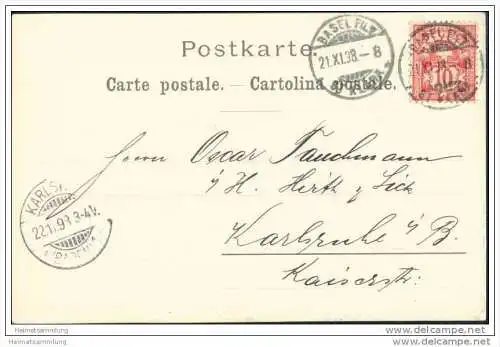 Postkarte.
Carte postale. — Cartolina postale.
BASEL FIL.
21.XI.98.-8
10
Herrn Oscar Tauchmann
i/H. Hirth & Sick
Karlsruhe i/B.
Kaiserstr:
KARLSR
22.11.98 3-4N.
(BADEN)
Heimatsammlung
Heimatsammlung
heimatsammlung.de